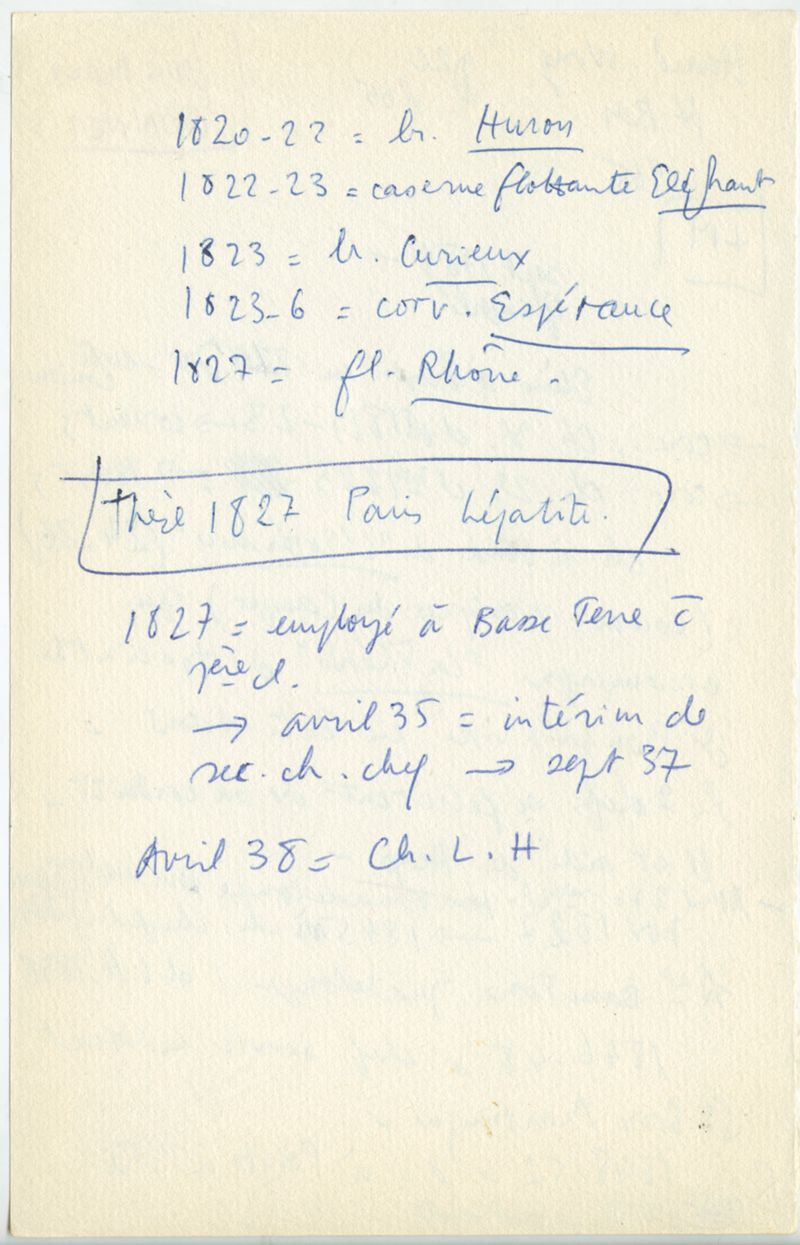 1820-22 = br. Huron
1822-23 = caserne flottante Eléphant
1823 = br. Curieux
1823-6 = corv. Espérance
1827 = fl. Rhône.
Thèse 1827 Paris hépatite.
1827 = employé à Basse Terre c̄
cl.
→ avril 35 = intérim de
sec. ch. chef → sept 37
Avril 38 = Ch. L. H